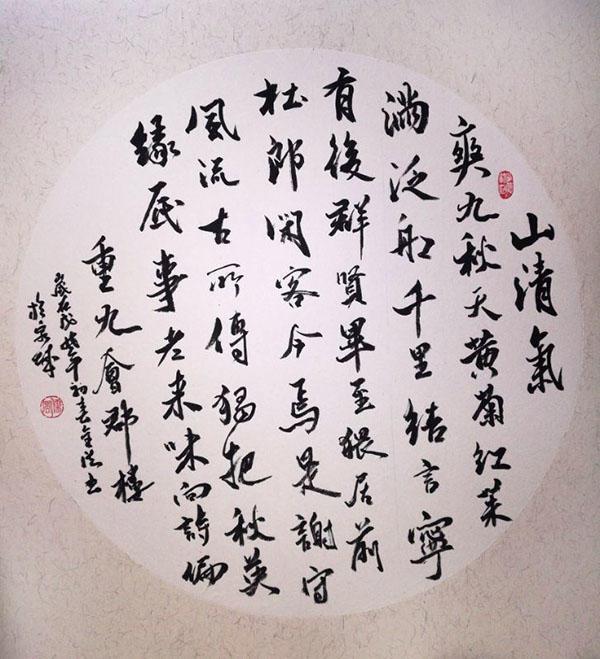 山清氣
爽九秋天黄菊红茱
滿泛船千里结言寧
有後群賢畢至猥居前
杜郎閑客今焉是謝守
風流古所傳獨把秋英
緣底事老来味向詩偏
重九會郡樓
歲在戊戌年初春
於泉城